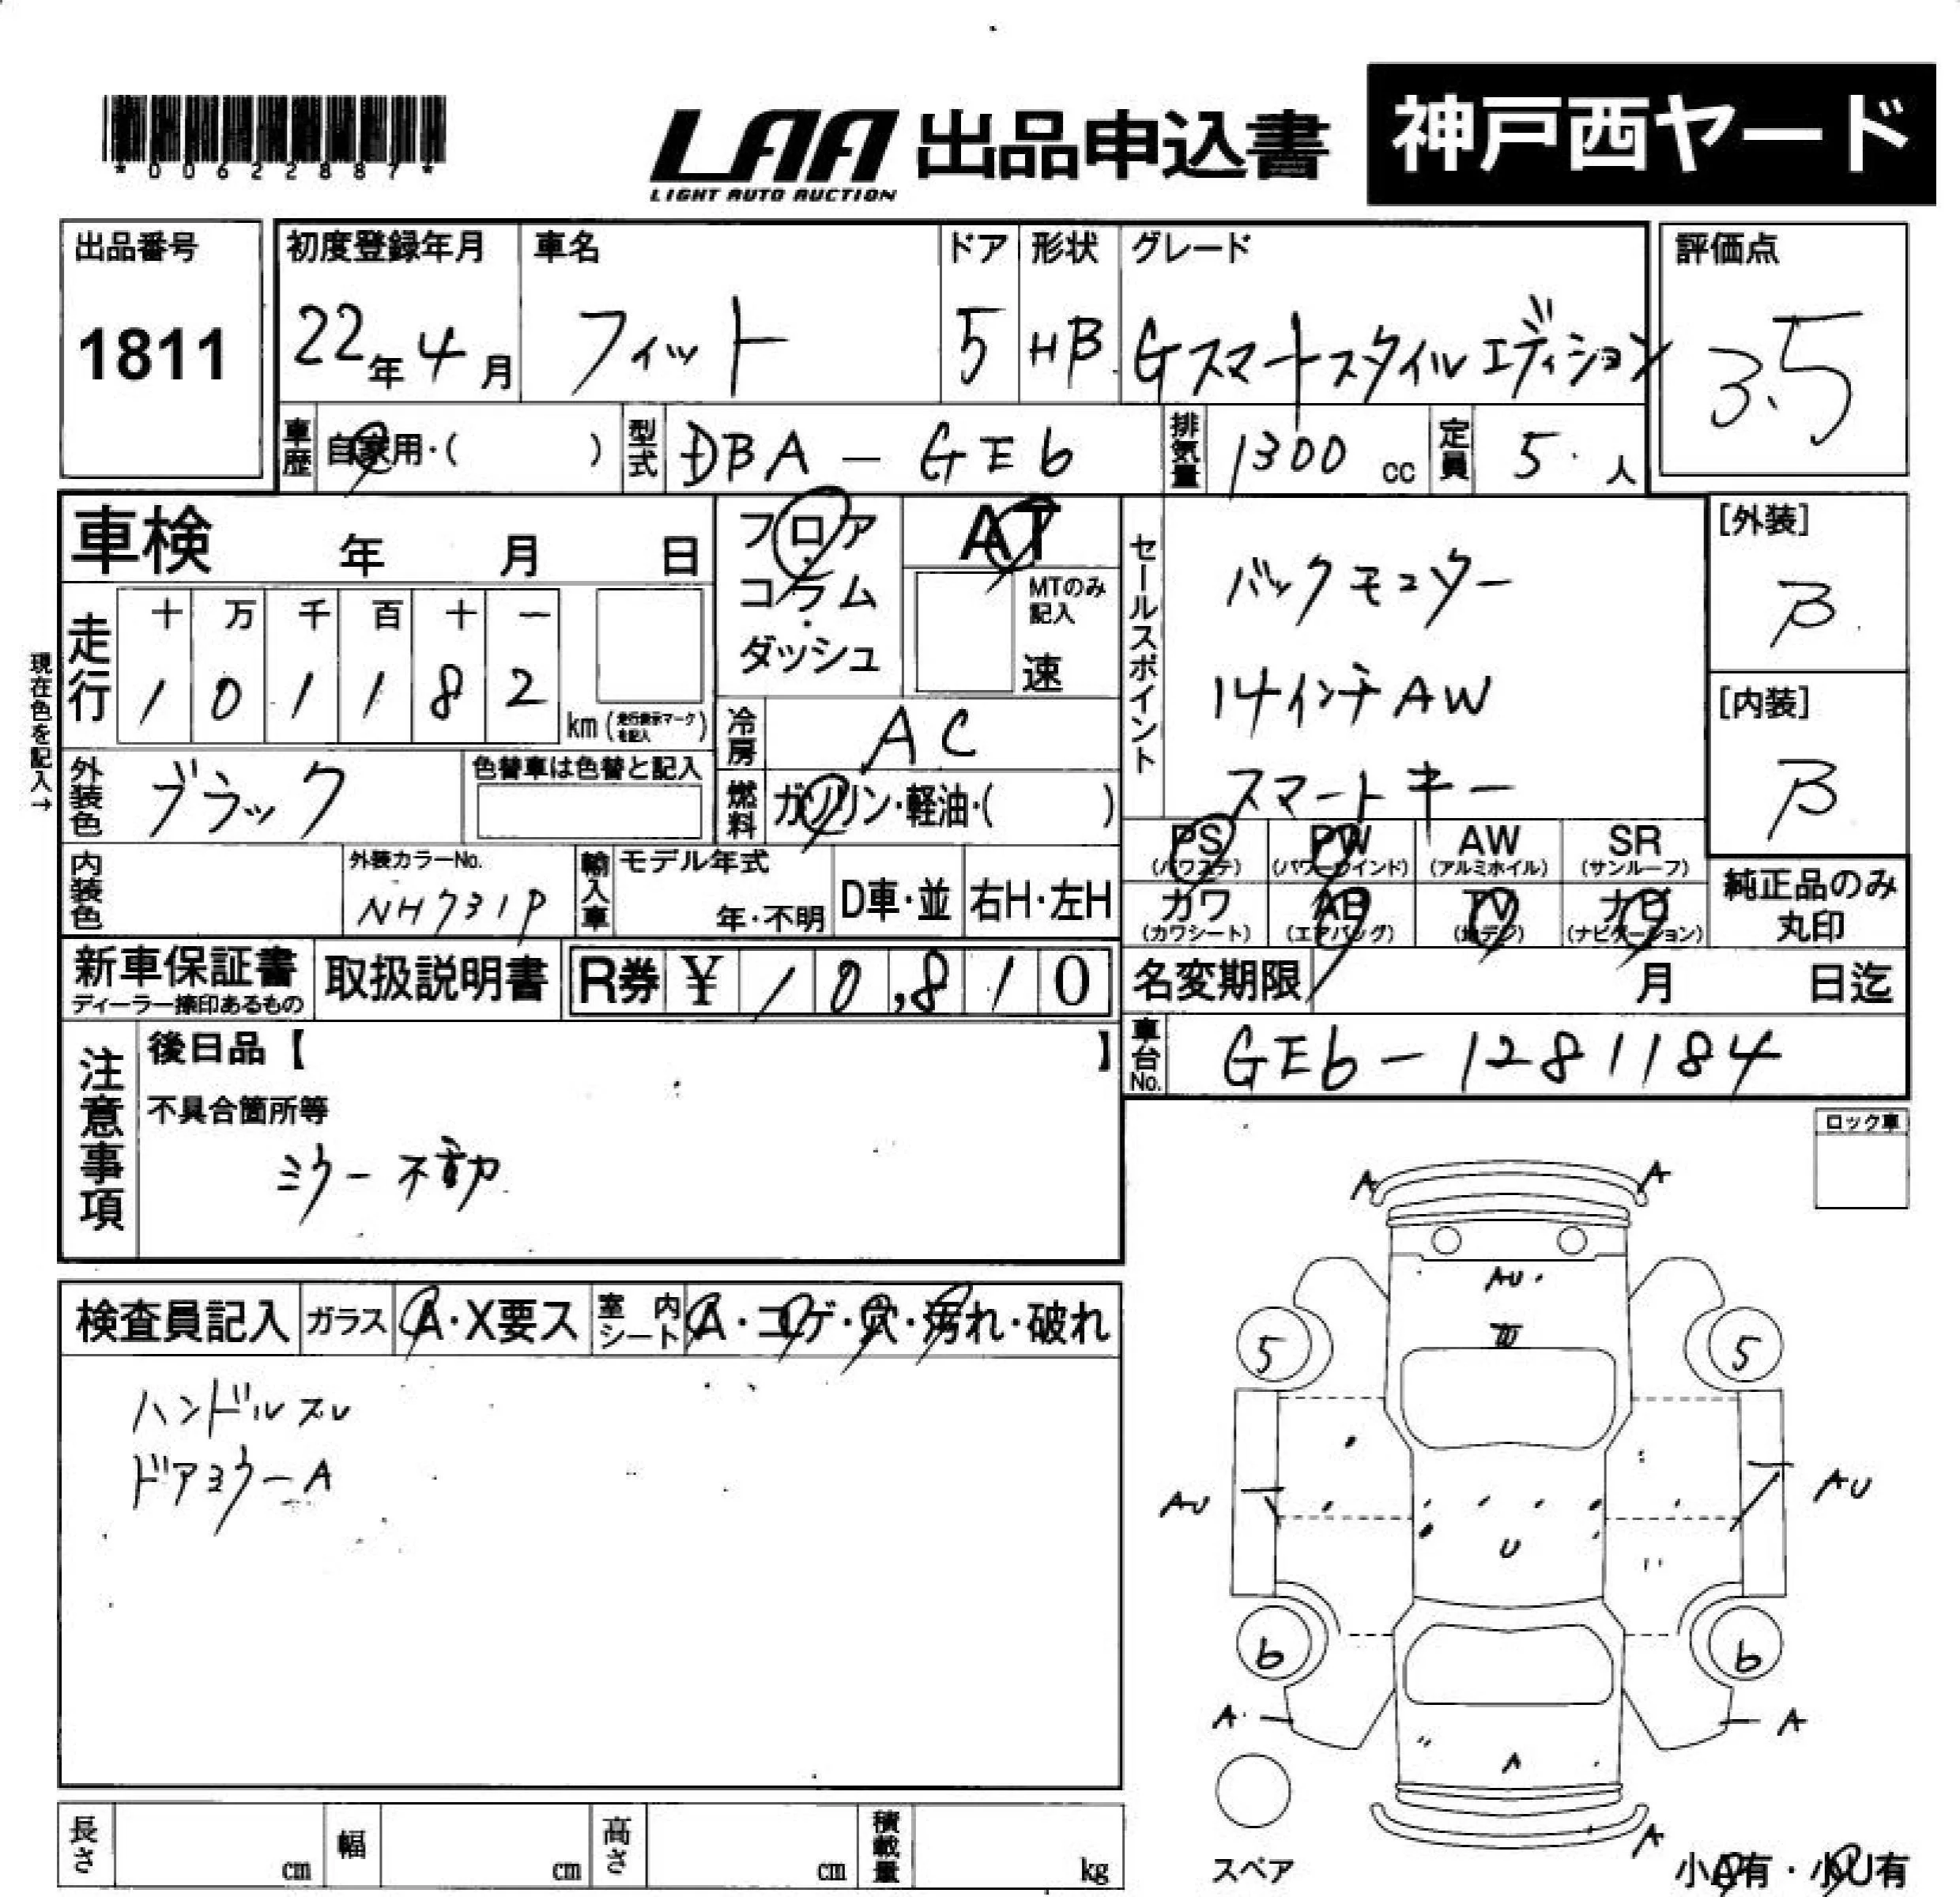 *00622887*
LAA 出品申込書 神戸西ヤード
LIGHT AUTO AUCTION
出品番号 初度登録年月 車名 ドア 形状 グレード 評価点
1811 22年4月 フィット 5 HB Gスマートスタイルエディション 3.5
車歴 自家用・( ) 型式 DBA-GE6 排気量 1300cc 定員 5人
車検 年 月 日
フロア・コラム・ダッシュ
AT
MTのみ記入
速
セールスポイント
バックモニター
14インチAW
スマートキー
[外装]
B
[内装]
B
純正品のみ丸印
現在色を記入→
走行 十 万 千 百 十 一
1 0 1 1 8 2 km (走行表示マークを記入)
冷房 AC
外装色 ブラック 色替車は色替と記入
燃料 ガソリン・軽油・( )
PS (パワステ) PW (パワーウインド) AW (アルミホイル) SR (サンルーフ)
カワ (カワシート) AB (エアバッグ) TV (地デジ) ナビ (ナビゲーション)
内装色 外装カラーNo. NH731P 輸入車 モデル年式 年・不明 D車・並 右H・左H
新車保証書 ディーラー捺印あるもの 取扱説明書 R券 ¥ 10,810
名変期限 月 日迄
車台No. GE6-1281184
注意事項
後日品【 】
不具合箇所等
ミラー不動
ロック車
検査員記入 ガラス A・X要ス 室内シート A・コゲ・穴・汚れ・破れ
ハンドルスレ
ドアミラーA
A A
AU
5 5
AU AU
U
6 6
A A
A
A
スペア
小A有・小U有
長さ cm 幅 cm 高さ cm 積載量 kg